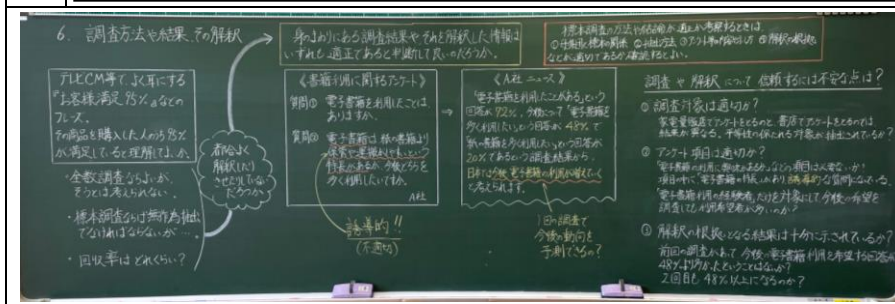 6. 調査方法や結果、その解釈
身のまわりにある調査結果やそれを解釈した情報は
いずれも適正であると判断して良いのだろうか。
標本調査の方法や結論が適正か考察するときは
①母集団と標本の関係 ②抽出方法 ③アンケート等の内容
などが適切であるか確認するとよい。
テレビCM等でよく耳にする
『お客様満足95%』などの
フレーズ。
その商品を購入した人のうち95%
が満足していると理解してよいか。
・全数調査ならよいが、
そうとは考えられない
・標本調査ならば無作為抽出
でなければならないが…
・回収率はどれくらい?
都合よく
解釈したり
させたりしていない
だろうか
《書籍利用に関するアンケート》
質問① 電子書籍を利用したことは
ありますか。
質問② 電子書籍は紙の書籍より
保管や運搬がしやすいという
特長があるが、今後どちらを
多く利用したいですか。
A社
誘導的!!
(不適切)
《A社 ニュース》
「電子書籍を利用したことがある」という
回答が72%、今後について「電子書籍を
多く利用したい」という回答が48%で
「紙の書籍を多く利用したい」という回答が
20%であるという調査結果から、
日本では今後、電子書籍の利用が増えていく
と考えられます。
1回の調査で
今後の動向を
予測できるの?
調査や解釈について信頼するには不安な点は?
① 調査対象は適切か?
家電量販店でアンケートをとるのと、書店でアンケートをとるのでは
結果が異なる。平等性の保たれる対象が抽出されているか?
② アンケート項目は適切か?
「電子書籍の利用に興味があるか」などの項目は必要ないか?
項目の中に「電子書籍の特長」があり誘導的な質問になっている。
「電子書籍の利用の経験者」だけを対象にして今後の希望を
調査しても利用希望者が多いのか?
③ 解釈の根拠となる結果は十分に示されているか?
前回の調査があって今後の電子書籍利用を希望する回答が
48%より多かったということはないか?
2回目も48%以上になるのか?